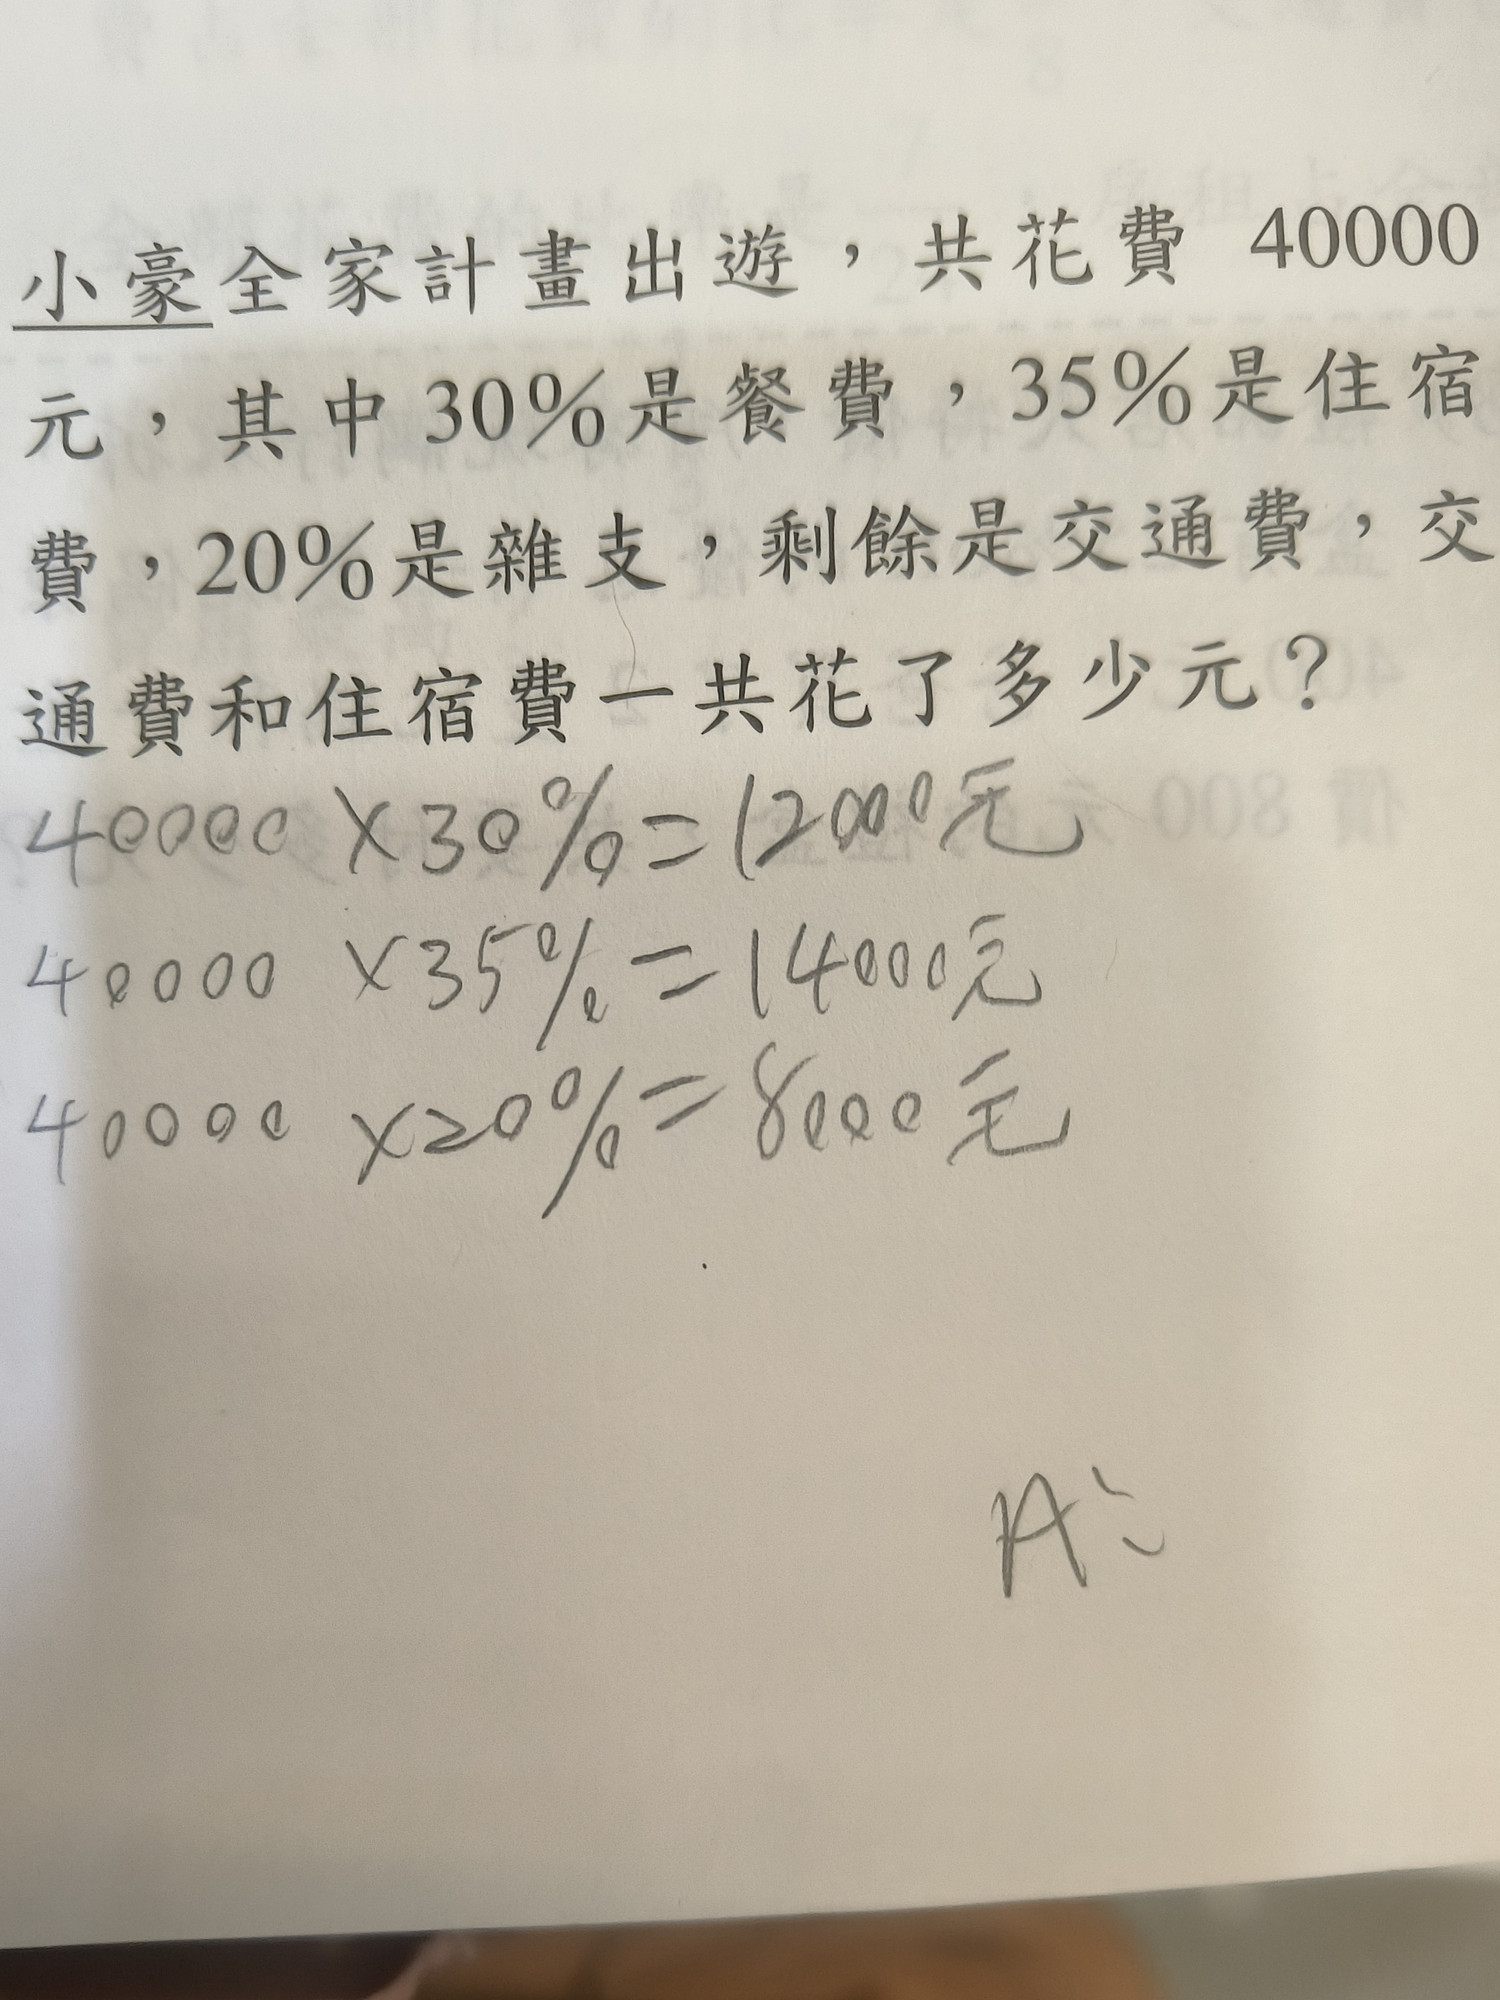 小豪全家計畫出遊，共花費 40000
元，其中30%是餐費，35%是住宿
費，20%是雜支，剩餘是交通費，交
通費和住宿費一共花了多少元？
40000 ×30%=12000元
40000 ×35%=14000元
40000 ×20%=8000元
A: